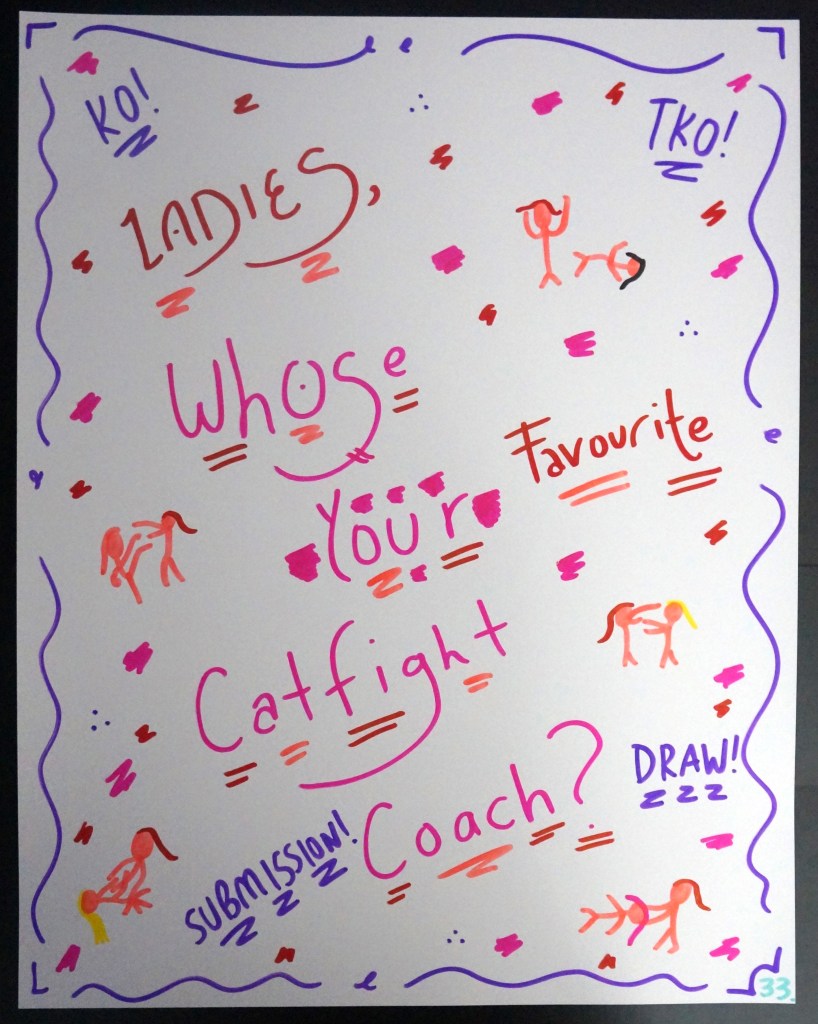 KO!
TKO!
LADIES,
Whose
Favourite
Your
Catfight
DRAW!
Coach?
SUBMISSION!
33.